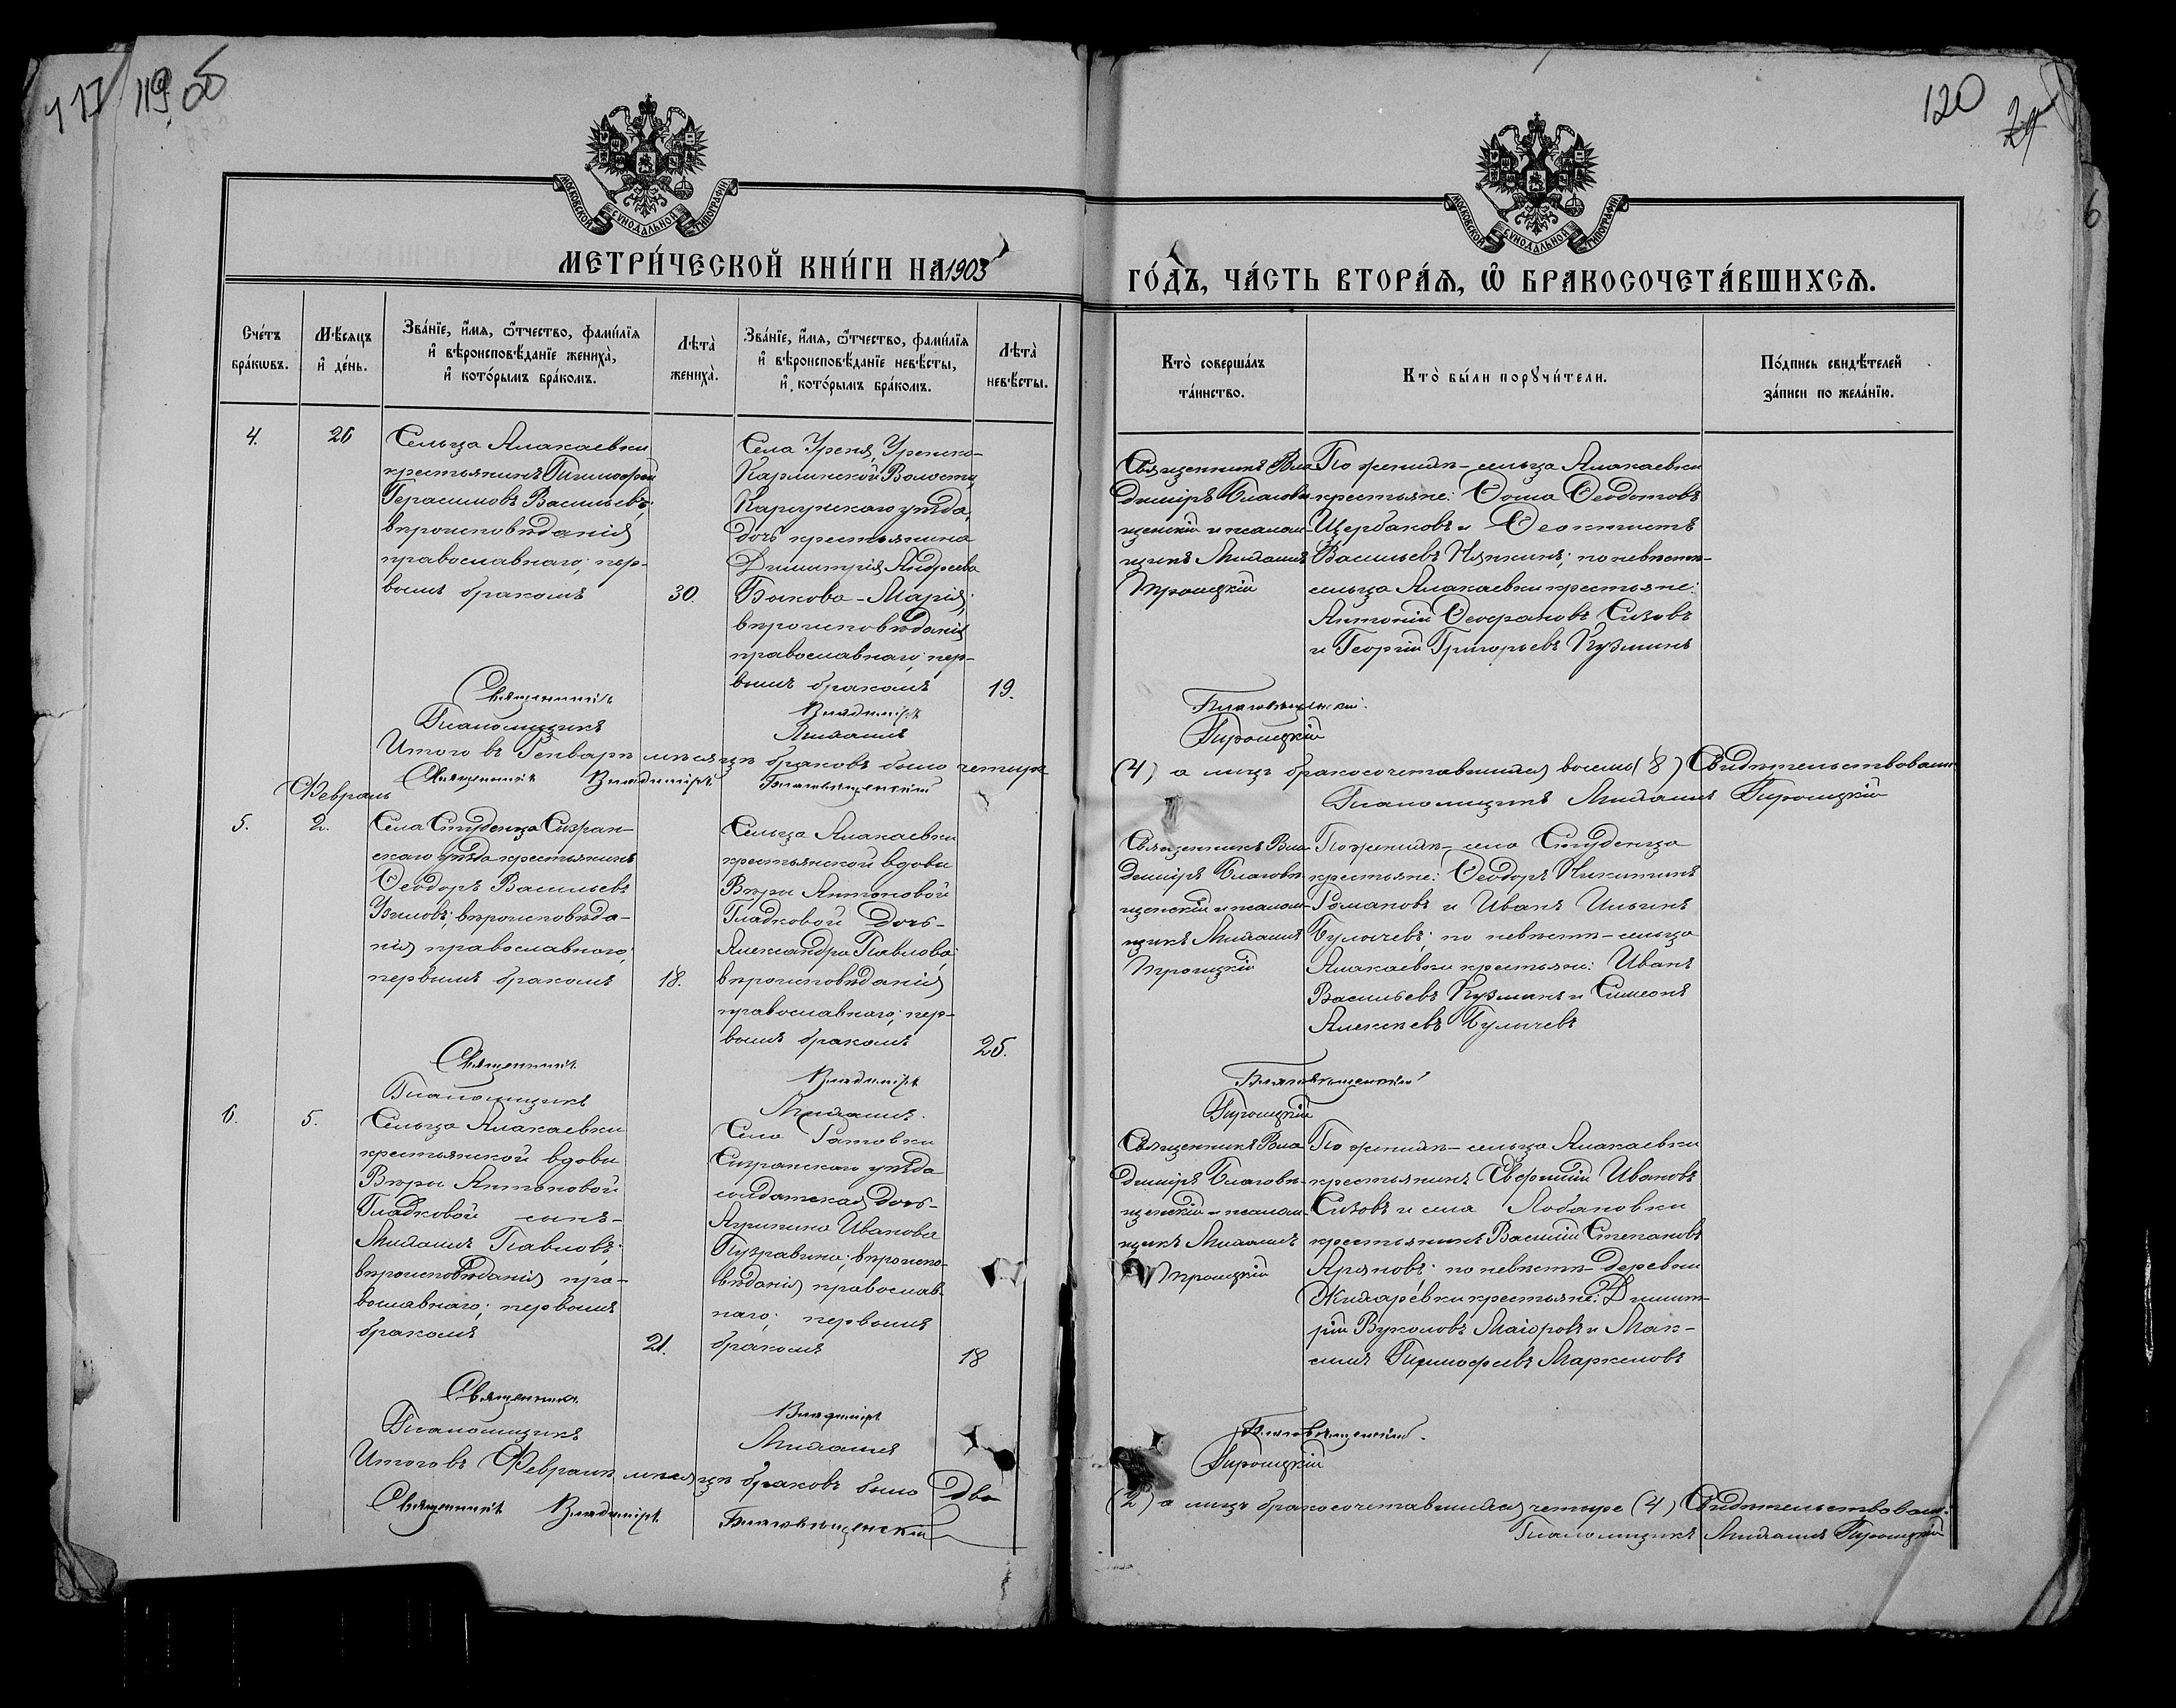 119 об
120
МОСКОВСКОЙ СѴНОДАЛЬНОЙ ТИПОГРАФІИ
МОСКОВСКОЙ СѴНОДАЛЬНОЙ ТИПОГРАФІИ
МЕТРИ́ЧЕСКОЙ КНИ́ГИ НА 1903
ГО́ДЪ, ЧА́СТЬ ВТОРА́Ѧ, Ѽ БРАКОСОЧЕТА́ВШИХСѦ.
Сче́тъ
бра́кѡвъ.
Мѣ́сяцъ
и҆ де́нь.
Зва́нїе, и҆́мѧ, ѻ҆́тчество, фами́лїѧ
и҆ вѣроисповѣ́данїе жениха̀,
и҆ кото́рымъ бра́комъ.
Лѣта̀
жениха̀.
Зва́нїе, и҆́мѧ, ѻ҆́тчество, фами́лїѧ
и҆ вѣроисповѣ́данїе невѣ́сты,
и҆ кото́рымъ бра́комъ.
Лѣта̀
невѣ́сты.
Кто̀ соверша́лъ
та́инство.
Кто̀ бы́ли порꙋчи́тели.
По́дпись свидѣ́телей
за́писи по жела́нїю.
4.
26
Сельца Алакаевки
крестьянинъ Тимофей
Герасимовъ Васильевъ;
вѣроисповѣданія
православнаго; пер-
вымъ бракомъ
30.
Села Уреня, Уренско-
Карлинской Волости,
Карсунскаго уѣзда,
дочь крестьянина
Димитрія Андреева
Быкова - Марія;
вѣроисповѣданія
православнаго; пер-
вымъ бракомъ
19.
Священникъ Вла
димiръ Благовѣ-
щенскій и псалом-
щикъ Михаилъ
Троицкій
По женихѣ - сельца Алакаевки
крестьяне: Ѳома Ѳедотовъ
Щербаковъ и Ѳеоктистъ
Васильевъ Няпкинъ; по невѣстѣ -
сельца Алакаевки крестьяне:
Антоній Ѳеофановъ Сизовъ
и Георгій Григорьевъ Кузминъ
Священникъ Владиміръ Благовѣщенскій.
Псаломщикъ Михаилъ Троицкій
Итого въ Генварѣ мѣсяцѣ браковъ было четыре
(4) а лицъ бракосочетавшихся восемь (8) Свидѣтельствовали
Священникъ Владиміръ Благовѣщенскій
Псаломщикъ Михаилъ Троицкій
Февраль
5.
2.
Села Студенца Сызран-
скаго уѣзда крестьянинъ
Ѳеодоръ Васильевъ
Узиловъ; вѣроисповѣда-
нія православнаго;
первымъ бракомъ
18.
Сельца Алакаевки
крестьянской вдовы
Вѣры Антоновой
Гладковой дочь -
Александра Павлова;
вѣроисповѣданія
православнаго; пер-
вымъ бракомъ
25.
Священникъ Вла-
димiръ Благовѣ
щенскій и псалом-
щикъ Михаилъ
Троицкій
По женихѣ - села Студенца
крестьяне: Ѳеодоръ Никитинъ
Романовъ и Иванъ Ильинъ
Булычевъ; по невѣстѣ - сельца
Алакаевки крестьяне: Иванъ
Васильевъ Кузминъ и Симеонъ
Алексѣевъ Булычевъ
Священникъ Владиміръ Благовѣщенскій
Псаломщикъ Михаилъ Троицкій
6.
5.
Сельца Алакаевки
крестьянской вдовы
Вѣры Антоновой
Гладковой сынъ -
Михаилъ Павловъ;
вѣроисповѣданія пра-
вославнаго; первымъ
бракомъ
21.
Села Ратовки
Сызранскаго уѣзда
солдатская дочь -
Агриппина Иванова
Пузравина; вѣроиспо-
вѣданія православ-
наго; первымъ
бракомъ
18
Священникъ Вла
димiръ Благовѣ-
щенскій и псалом-
щикъ Михаилъ
Троицкій
По женихѣ - сельца Алакаевки
крестьянинъ Евфимій Ивановъ
Сизовъ и села Лобановки
крестьянинъ Василій Степановъ
по невѣстѣ - деревни
Жихаревки крестьяне: Димит-
рій Вуколовъ Маіоровъ и Мак-
симъ Тимофеевъ Маркеловъ
Священникъ Владиміръ Благовѣщенскій.
Псаломщикъ Михаилъ Троицкій
Итого въ Февралѣ мѣсяцѣ браковъ было два
(2) а лицъ бракосочетавшихся четыре (4) Свидѣтельствовали:
Священникъ Владиміръ Благовѣщенскій
Псаломщикъ Михаилъ Троицкій